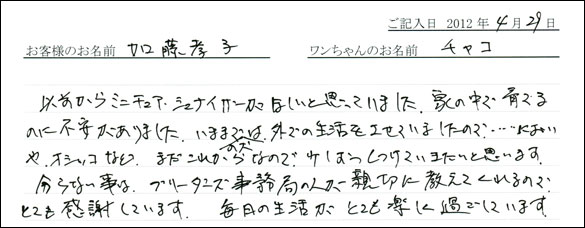 ご記入日 2012 年 4 月 29 日
お客様のお名前 加藤孝子 ワンちゃんのお名前 チャコ
以前からミニチュア・シュナイザーがほしいと思っていました。家の中で育てる
のに不安がありました。いままでのズは、外での生活をさせていましたので……においい
や、オシッコなど、まだこれからなので少しずつしつけていきたいと思います。
分らない事は、ブリーダーズ事務局の人が親切に教えてくれるので、
とても感謝しています。毎日の生活がとても楽しく過ごしています。